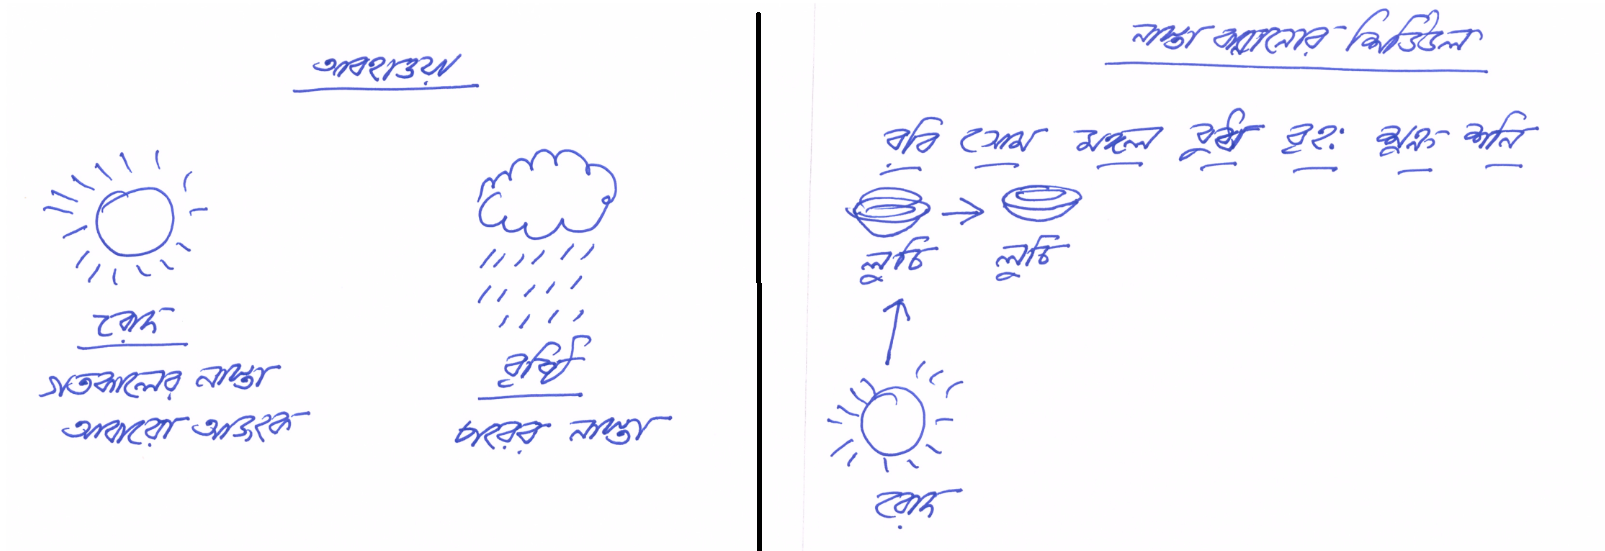 আবহাওয়া
রোদ
গতকালের নাস্তা
আবারো আজকে
বৃষ্টি
পরের নাস্তা
নাস্তা বানানোর শিডিউল
রবি সোম মঙ্গল বুধ বৃহঃ শুক্র শনি
লুচি লুচি
রোদ